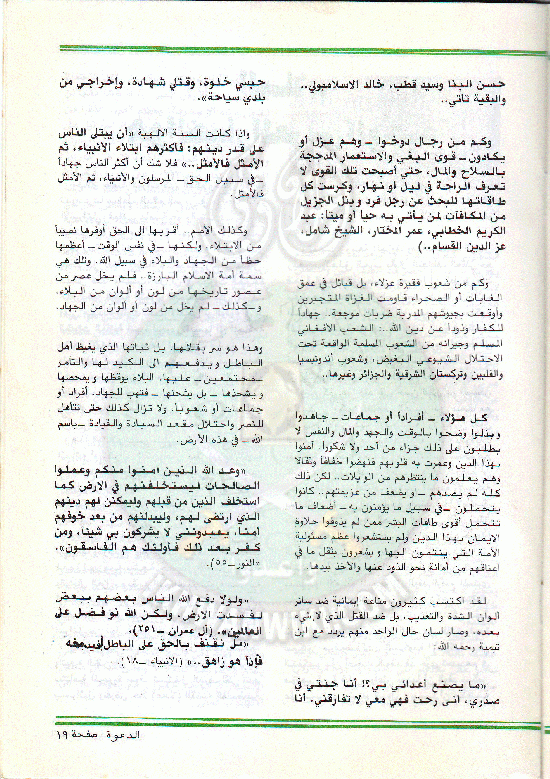 حسن البنا وسيد قطب، خالد الاسلامبولي..
والبقية تأتي..
وكم من رجال دوخوا – وهم عزل أو
يكادون – قوى البغي والاستعمار المدججة
بالسلاح والمال، حتى أصبحت تلك القوى لا
تعرف الراحة في ليل أو نهار، وكرست كل
طاقاتها للبحث عن رجل فرد وبذل الجزيل
من المكافآت لمن يأتي به حيا أو ميتا: عبد
الكريم الخطابي، عمر المختار، الشيخ شامل،
عز الدين القسام..)
وكم من شعوب فقيرة عزلاء، بل قبائل في عمق
الغابات أو الصحراء قاومت الغزاة المتجبرين
وأوقعت بجيوشهم المدربة ضربات موجعة.. جهاداً
للكفار وذوداً عن دين الله..: الشعب الأفغاني
المسلم وجيرانه من الشعوب المسلمة الواقعة تحت
الاحتلال الشيوعي البغيض، وشعوب أندونيسيا
والفلبين وتركستان الشرقية والجزائر وغيرها..
كل هؤلاء – أفراداً أو جماعات – جاهدوا
وبذلوا وضحوا بالوقت والجهد والمال والنفس لا
يطلبون على ذلك جزاء من أحد ولا شكورا. آمنوا
بهذا الدين وعمرت به قلوبهم فنهضوا خفافاً وثقالا
وهم يعلمون ما ينتظرهم من الويلات.. لكن ذلك
كله لم يصدهم – ويضعف من عزيمتهم.. كانوا
يتحملون – في سبيل ما يؤمنون به – أضعاف ما
تتحمل أقوى طاقات البشر ممن لم يذوقوا حلاوة
الايمان بهذا الدين ولم يستشعروا عظم مسئولية
الأمة التي ينتمون اليها ويشعرون بثقل ما في
أعناقهم من أمانة نحو الذود عنها والأخذ بيدها.
لقد اكتسب كثيرون مناعة إيمانية ضد سائر
ألوان الشدة والتعذيب، بل ضد القتل الذي لا شيء
بعده، وصار لسان حال الواحد منهم يردد مع ابن
تيمية رحمه الله:
«ما يصنع أعدائي بي؟! أنا جنتي في
صدري، أنى رحت فهي معي لا تفارقني. أنا
حبسي خلوة، وقتلي شهادة، وإخراجي من
بلدي سياحة».
واذا كانت السنة الالهية «أن يبتلى الناس
على قدر دينهم: فأكثرهم ابتلاء الأنبياء، ثم
الأمثل فالأمثل..» فلا شك أن أكثر الناس جهاداً
– في سبيل الحق – المرسلون والأنبياء، ثم الأمثل
فالأمثل.
وكذلك الأمم.. أقربها الى الحق أوفرها نصيباً
من الابتلاء، ولكنها – في نفس الوقت – أعظمها
حظاً من الجهاد والبلاء في سبيل الله، وتلك هي
سمة أمة الاسلام البارزة.. فلم يخل عصر من
عصور تاريخها من لون أو ألوان من البلاء،
– وكذلك – لم يخل من لون أو ألوان من الجهاد.
وهذا هو سر بقائها، بل ثباتها الذي يغيظ أهل
الباطل ويدفعهم الى الكيد لها والتآمر
– مجتمعين – عليها، البلاء يوقظها ويمحصها
ويشحذها – بل يشحنها – فتهب للجهاد. أفراد أو
جماعات أو شعوباً، ولا تزال كذلك حتى تتأهل
للنصر واحتلال مقعد السيادة والقيادة – باسم
الله – في هذه الأرض.
«وعد الله الذين آمنوا منكم وعملوا
الصالحات ليستخلفنهم في الأرض كما
استخلف الذين من قبلهم وليمكنن لهم دينهم
الذي ارتضى لهم، وليبدلنهم من بعد خوفهم
أمنا، يعبدونني لا يشركون بي شيئا، ومن
كفر بعد ذلك فأولئك هم الفاسقون».
«النور – ٥٥).
«ولولا دفع الله الناس بعضهم ببعض
لفسدت الأرض، ولكن الله ذو فضل على
العالمين». (آل عمران – ٢٥١).
«بل نقذف بالحق على الباطل فيدمغه
فإذا هو زاهق..» (الأنبياء – ١٨).
الدعوة / صفحة ١٩